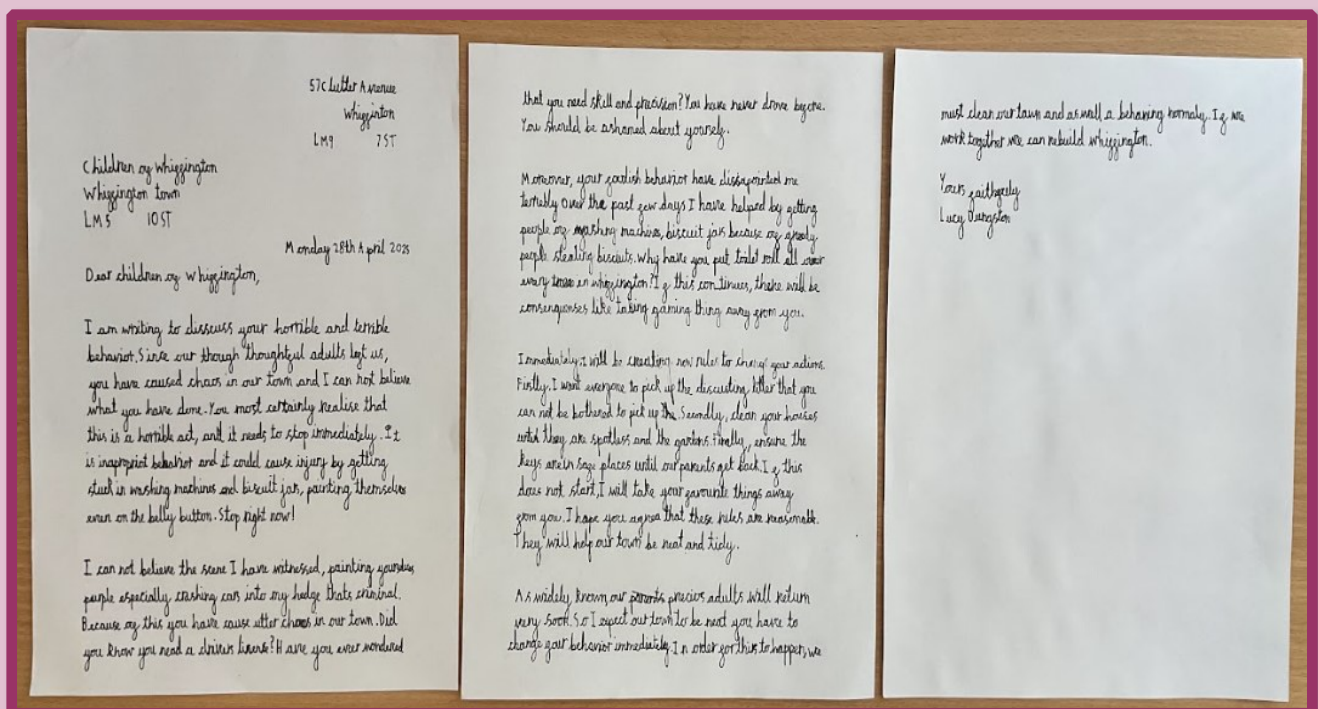 57c Lutter Avenue
Whiggington
LM9 7ST
Children of Whiggington
Whiggington town
LM5 10ST
Monday 28th April 2025
Dear children of Whiggington,
I am writing to disscuss your horrible and terrible
behavior. Since our though thoughtful adults left us,
you have caused chaos in our town and I can not believe
what you have done. You most certainly realise that
this is a horrible act, and it needs to stop immediately. It
is inapropriot behabior and it could cause injury by getting
stuck in washing machines and biscuit jars, painting themselves
even on the belly button. Stop right now!
I can not believe the scene I have witnessed, painting
people especially crashing cars into my hedge thats criminal.
Because of this you have cause utter chaos in our town. Did
you know you need a drivers lisense? Have you ever wondered
that you need skill and precision? You have never drove before.
You should be ashamed about yourself.
Moreover, your foolish behavior have dissapointed me
terribly Over the past few days I have helped by getting
people of washing machines, biscuit jars because of greedy
people stealing biscuits. Why have you put toilet roll all over
every tree in whiggington? If this continues, there will be
consenquenses like taking gaming thing away from you.
Immediately, I will be creating new rules to change your actions.
Firstly. I want everyone to pick up the descusting litter that you
can not be bothered to pick up. Secondly, clean your houses
until they are spotless and the gardens. Finally, ensure the
keys are in safe places until our parents get back. If this
does not start, I will take your favourite things away
from you. I hope you agrea that these rules are reasonable.
They will help our town be neat and tidy.
As widely known our parents precius adults will return
very soon. So I expect our town to be neat you have to
change your behavior immediately. In order for this to happen, we
must clean our town and as well a behaving normaly. If we
work together we can rebuild whiggington.
Yours faithfully
Lucy Dungston